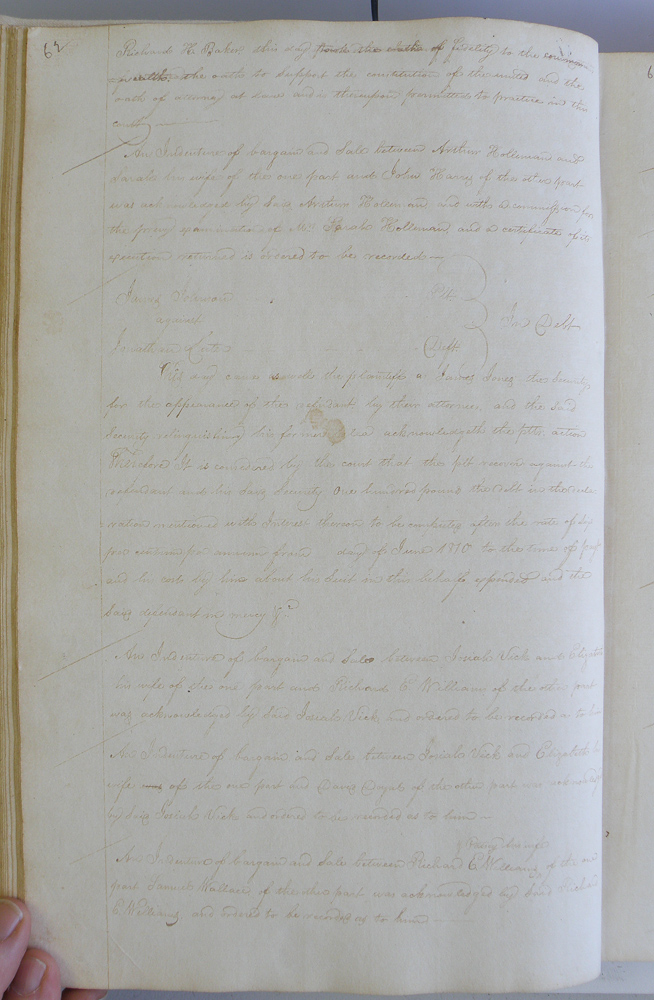 62
Richard H. Baker this day took the oaths of fidelity to the common
wealth, the oath to support the constitution of the united and the
oath of attorney at Law and is thereupon permitted to practice in this
court
An Indenture of bargain and Sale between Arthur Holleman and
Sarah his wife of the one part and John Harris of the other part
was acknowledged by said Arthur Holleman and with a commission for
the privy examination of Mrs Sarah Holleman, and a certificate of its
execution returned is ordered to be recorded
James Johnson Plt
against In Debt
Jonathan Deft
This day came as well the plaintiff as James Jones the Security
for the appearance of the defendant by their attornies, and the said
Security relinquishing his former plea acknowledgeth the plts action
Therefore It is considered by the court that the plt recover against the
defendant and his said Security One hundred pounds the debt in the decla
ration mentioned with Interest thereon to be computed after the rate of six
per centum per annum from day of June 1810 to the time of payt
and his costs by him about his suit in this behalf expended and the
said defendant in mercy &c.
An Indenture of bargain and Sale between Josiah Vick and Elizabeth
his wife of the one part and Richard E Williams of the other part
was acknowledged by said Josiah Vick and ordered to be recorded as to him
An Indenture of bargain and Sale between Josiah Vick and Elizabeth his
wife was of the one part and David of the other part was acknowledged
by said Josiah Vick and ordered to be recorded as to him
& his wife
An Indenture of bargain and Sale between Richard E Williams of the one
part Samuel Wallace of the other part was acknowledged by said Richard
E Williams and ordered to be recorded as to him